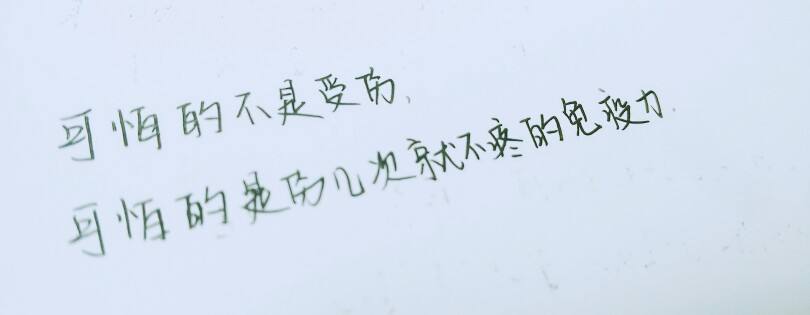 可怕的不是受伤,
可怕的是伤几次就不疼的免疫力.